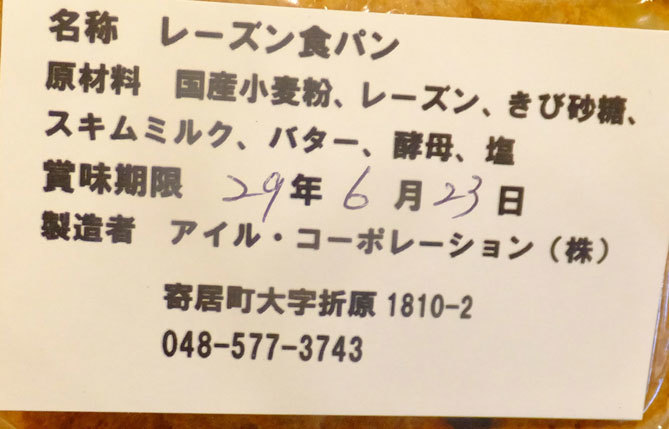 名称　レーズン食パン
原材料　国産小麦粉、レーズン、きび砂糖、
スキムミルク、バター、酵母、塩
賞味期限　29年6月23日
製造者　アイル・コーポレーション（株）
寄居町大字折原1810-2
048-577-3743